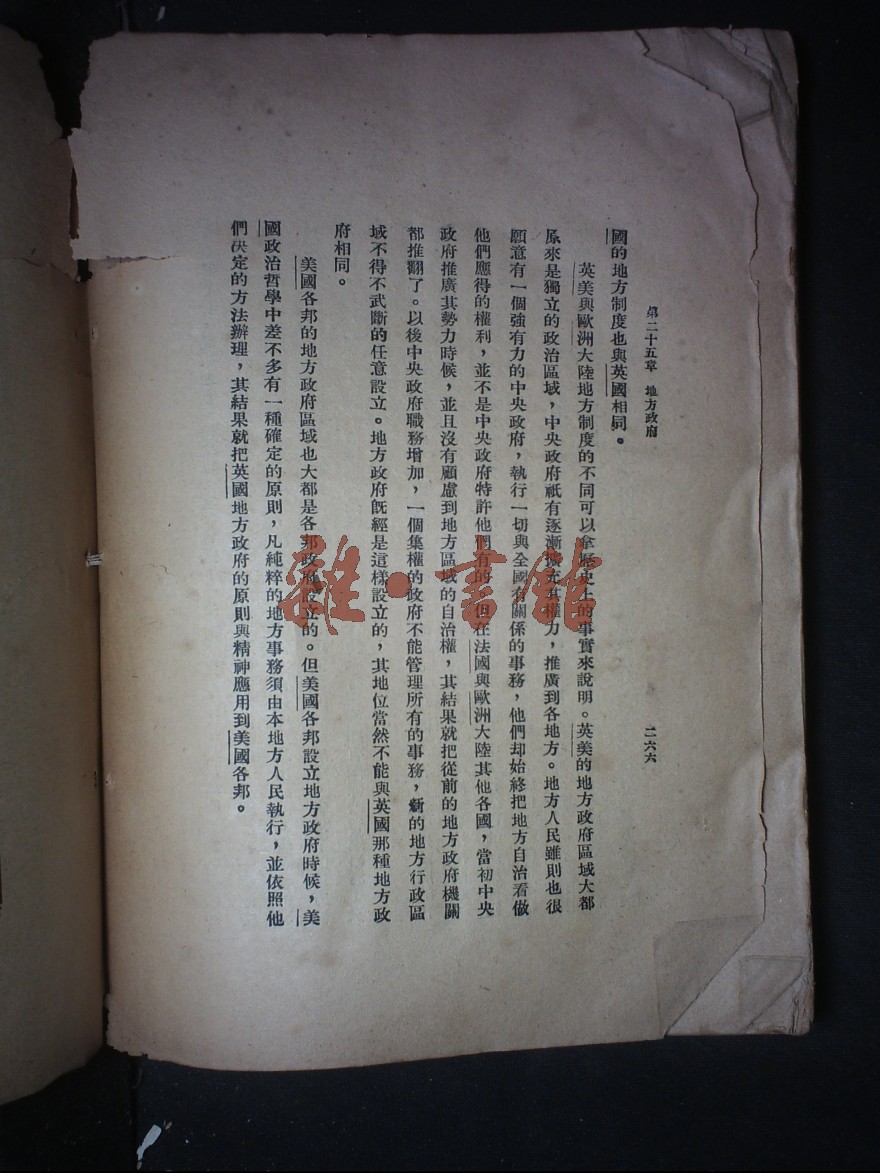 第二十五章　地方政府　二六六
國的地方制度也與英國相同。
英美與歐洲大陸地方制度的不同可以拿歷史上的事實來說明。英美的地方政府區域大都
原來是獨立的政治區域，中央政府祇有逐漸擴充其權力，推廣到各地方。地方人民雖則也很
願意有一個強有力的中央政府，執行一切與全國有關係的事務，他們却始終把地方自治看做
他們應得的權利，並不是中央政府特許他們有的。但在法國與歐洲大陸其他各國，當初中央
政府推廣其勢力時候，並且沒有顧慮到地方區域的自治權，其結果就把從前的地方政府機關
都推翻了。以後中央政府職務增加，一個集權的政府不能管理所有的事務，新的地方行政區
域不得不武斷的任意設立。地方政府旣經是這樣設立的，其地位當然不能與英國那種地方政
府相同。
美國各邦的地方政府區域也大都是各邦政府設立的。但美國各邦設立地方政府時候，美
國政治哲學中差不多有一種確定的原則，凡純粹的地方事務須由本地方人民執行，並依照他
們決定的方法辦理，其結果就把英國地方政府的原則與精神應用到美國各邦。
雜·書館